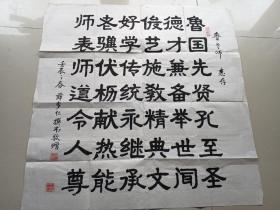 惠存
鲁国先贤孔至圣
德才兼备举世闻
俊艺施教精典文
好学传统永继承
老骥伏枥献热能
师表师道令人尊
壬辰之春 撰书敬赠